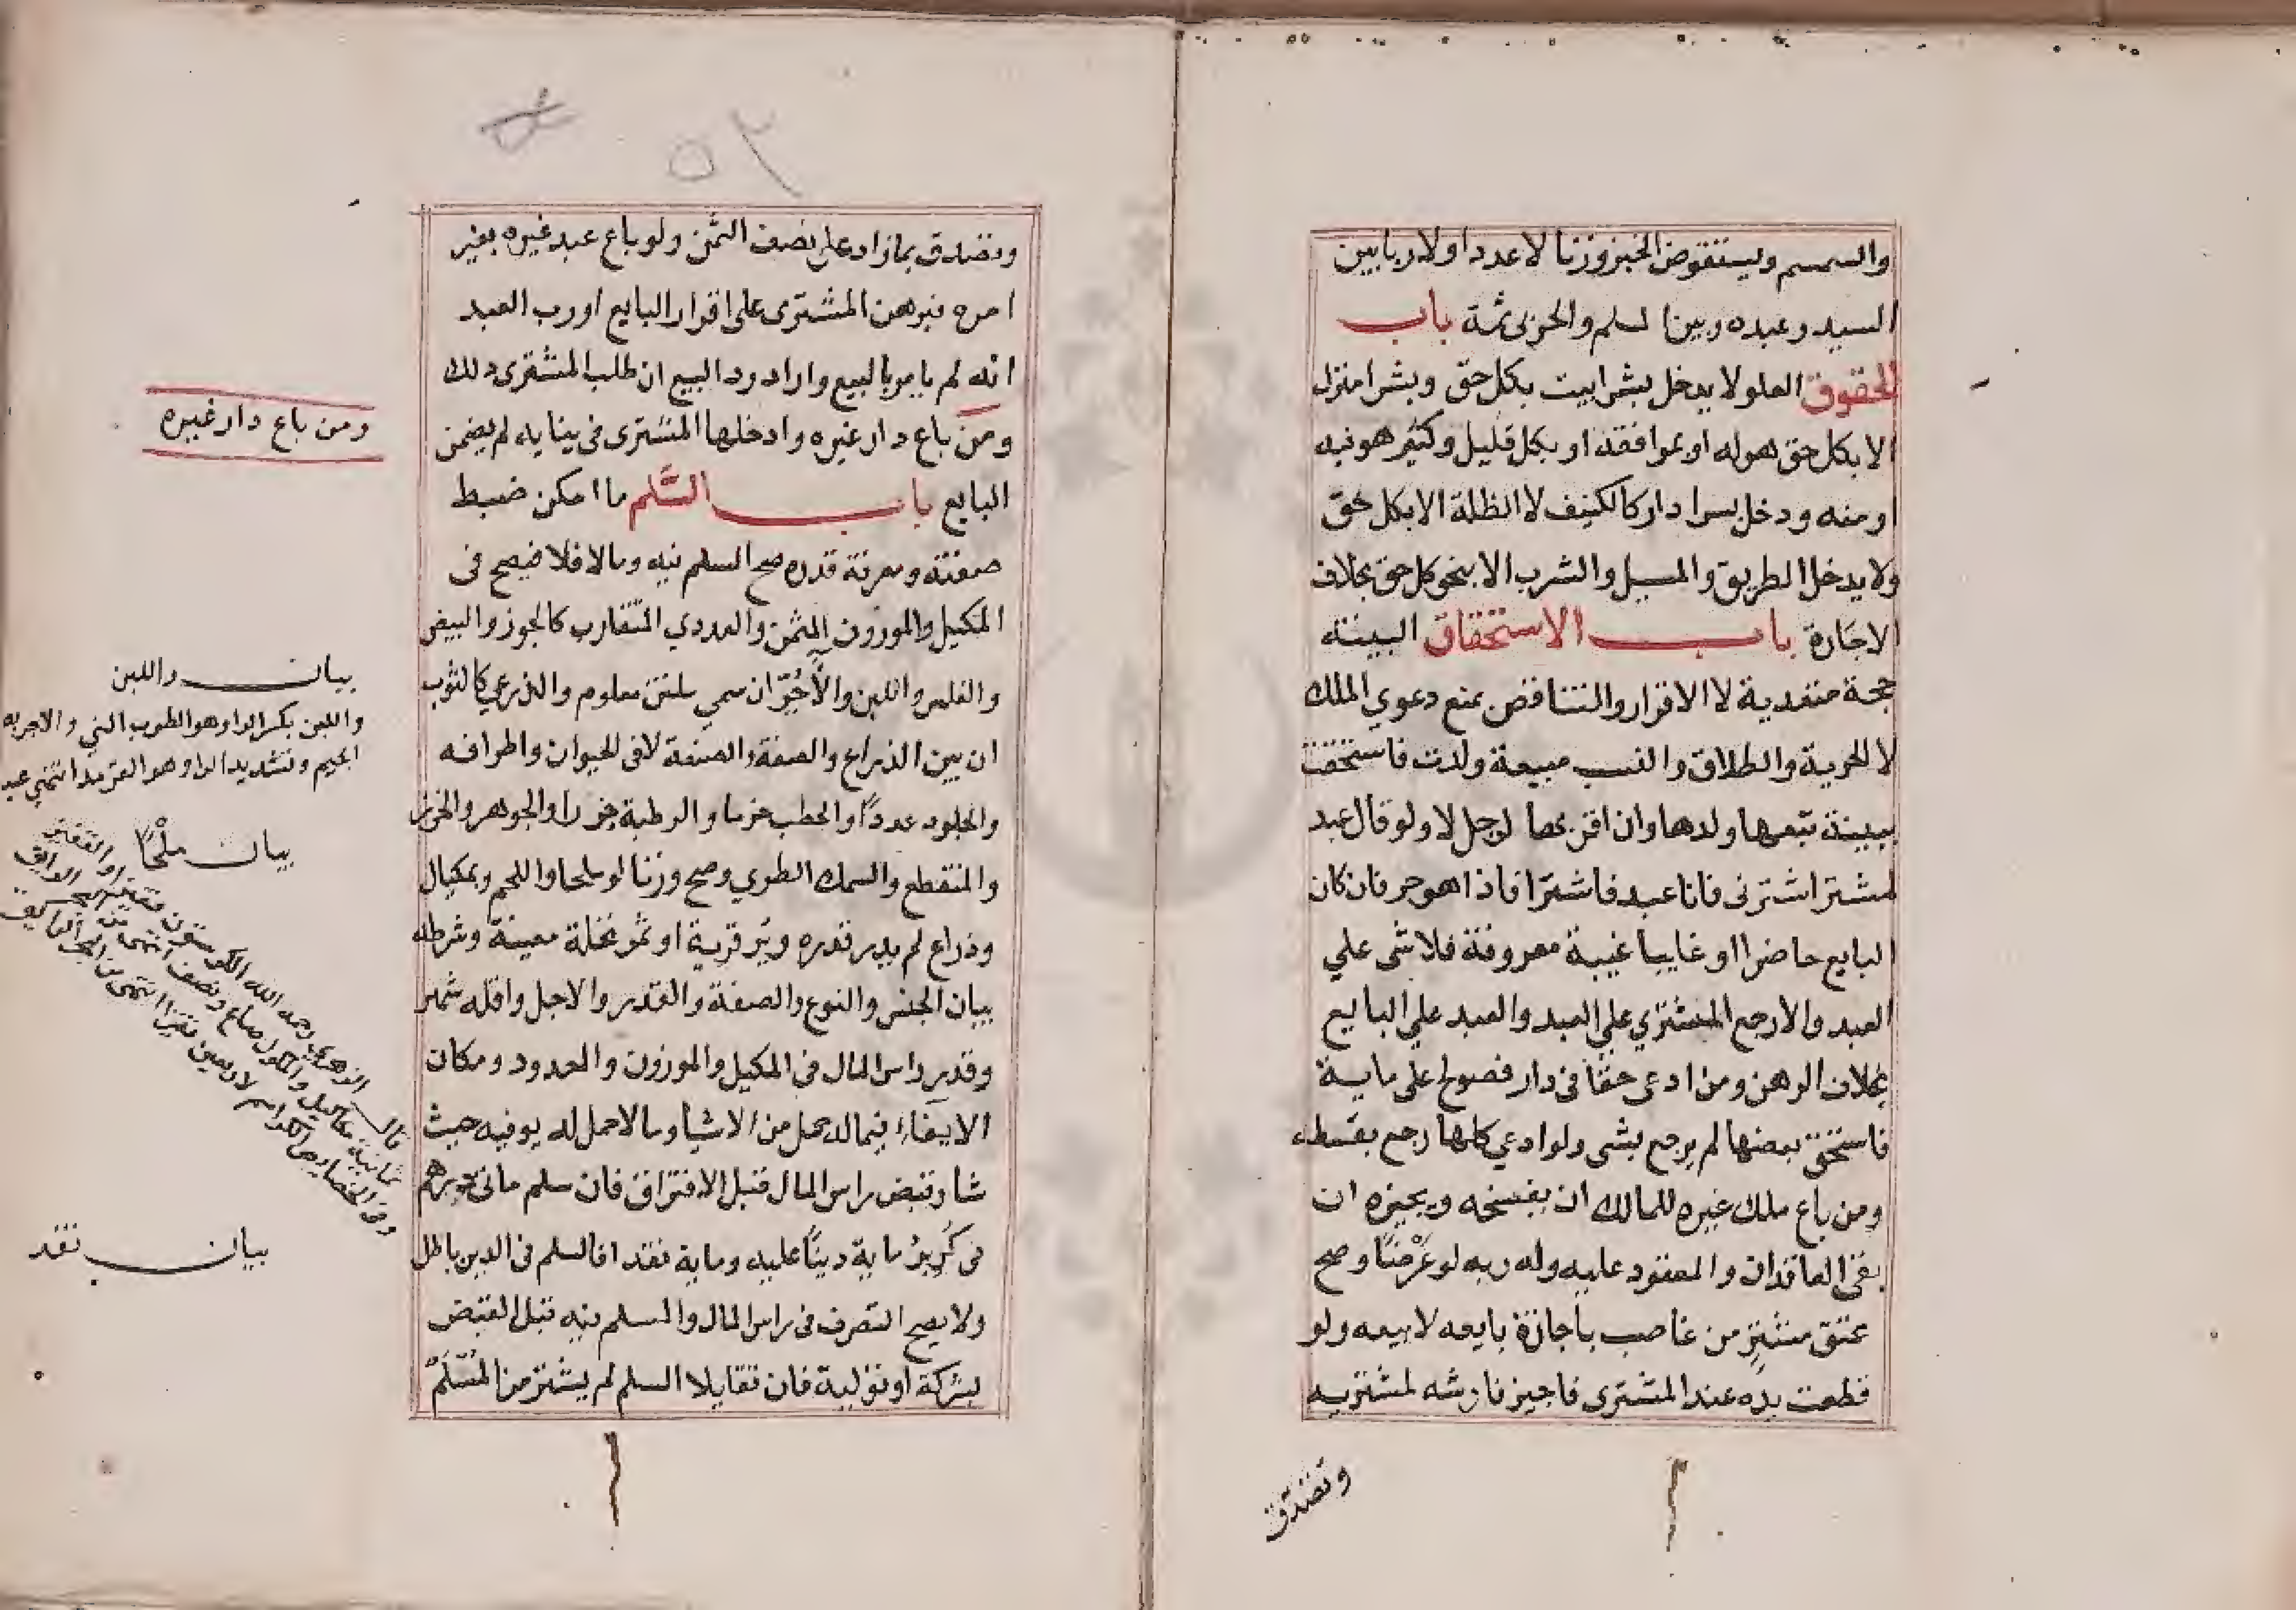 والسمسم ويستقرض الخبز وزنا لا عددا ولا ربا بين
السيد وعبده وبين المسلم والحربى ثمة باب
الحقوق العلو لا يدخل بشرا بيت بكل حق وبشرا منزل
الا بكل حق هو له او بمرافقه او بكل قليل وكثير هو فيه
او منه ودخل بسرا دار كالكنيف لا الظلة الا بكل حق
ولا يدخل الطريق والمسيل والشرب الا بنحو كل حق بخلاف
الاجارة باب الاستحقاق البينة
حجة متعدية لا الاقرار والتناقض يمنع دعوي الملك
لا الحرية والطلاق والنسب مبيعة ولدت فاستحقت
ببينة يتبعها ولدها وان اقر بها لرجل لا ولو قال عبد
لمشتر اشترنى فانا عبد فاشترا فاذا هو حر فان كان
البايع حاضرا او غايبا غيبة معروفة فلا شى علي
العبد والا رجع المشتري علي العبد والعبد علي البايع
بخلاف الرهن ومن ادعى حقا فى دار فصولح على ماية
فاستحق بعضها لم يرجع بشى ولو ادعي كلها رجع بقسطه
ومن باع ملك غيره للمالك ان يفسخه ويجيزه ان
بقى العاقدان والمعقود عليه وله وبه لو عرضا وصح
عتق مشتر من غاصب باجازة بايعه لا بيعه ولو
قطعت يده عند المشترى فاجيز فارشه لمشتريه
وتصدق
٥٢
وتصدق بما زاد على نصف الثمن ولو باع عبد غيره بغير
امره فبرهن المشترى على اقرار البايع او رب العبد
انه لم يامر بالبيع واراد رد البيع ان طلب المشترى ذلك
ومن باع دار غيره وادخلها المشترى فى بنايه لم يضمن
البايع باب السلم ما امكن ضبط
صفته ومعرفة قدره صح السلم فيه وما لا فلا فيصح فى
المكيل والموزون المثمن والعددي المتقارب كالجوز والبيض
والفلس واللبن والآجر ان سمي ملبن معلوم والذرعي كالثوب
ان بين الذراع والصفة والصنعة لا فى الحيوان واطرافه
والجلود عددا والحطب حزما والرطبة جرزا والجوهر والخرز
والمنقطع والسمك الطري وصح وزنا لو ملحا واللحم وبمكيال
وذراع لم يدر قدره وبر قرية او ثمر نخلة معينة وشرطه
بيان الجنس والنوع والصفة والقدر والاجل واقله شهر
وقدر راس المال فى المكيل والموزون والمعدود ومكان
الايفاء فيما له حمل من الاشيا وما لا حمل له يوفيه حيث
شا وقبض راس المال قبل الافتراق فان سلم مائى درهم
فى كر بر ماية دينا عليه وماية نقدا فالسلم فى الدين باطل
ولا يصح التصرف فى راس المال والمسلم فيه قبل القبض
بشركة او تولية فان تقايلا السلم لم يشتر من المسلم
ومن باع دار غيره
بيان واللبن
واللبن بكسر الباء وهو الطوب النى والاجر به
الجيم وتشديد الرا وهو القرميد انتهى
بيان ملحا
قال الزهري رحمه الله الكر ستون قفيزا والقفيز
ثمانية مكاكيل والمكوك صاع ونصف انتهى من البحر الرايق
بيان نقد